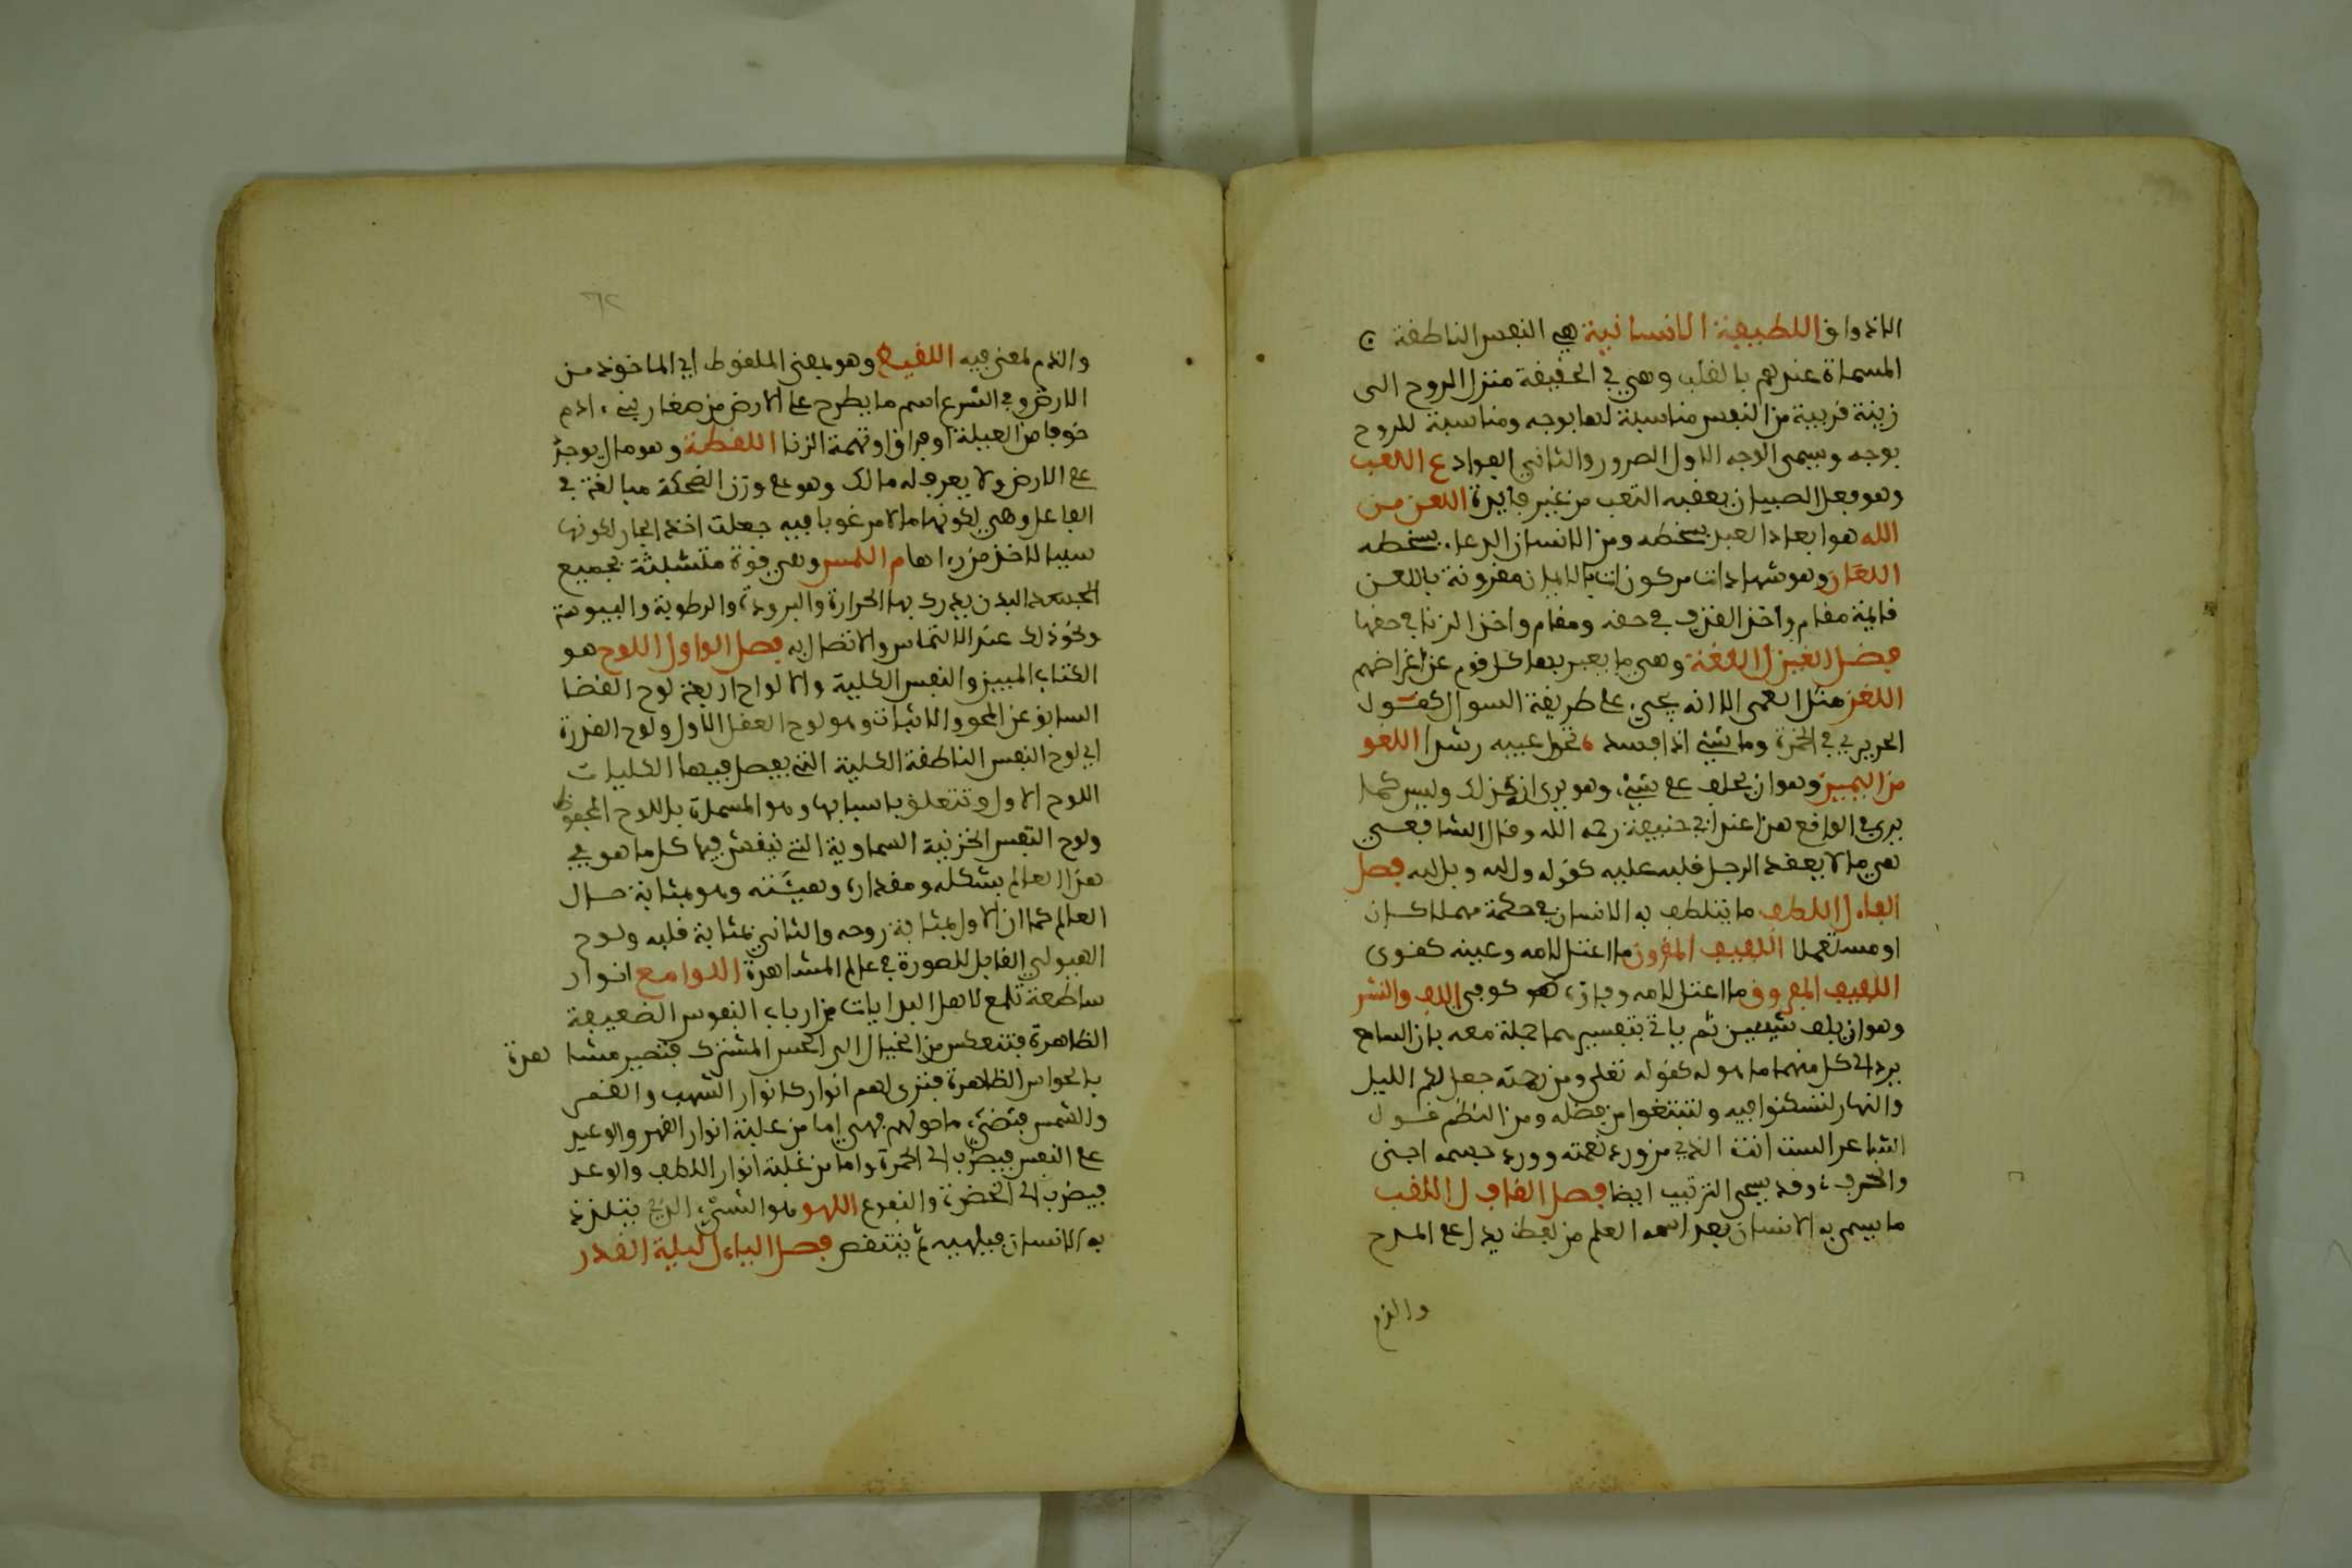 الاذواق اللطيفة الانسانية هي النفس الناطقة
المسماة عندهم بالقلب وهي في الحقيقة منزل الروح الى
زينة قريبة من النفس مناسبة لها بوجه ومناسبة للروح
بوجه ويسمى الوجه الاول الصدور والثاني الفواد ع اللعب
وهو فعل الصبيان يعقبه التعب من غير فايدة اللعن من
الله هو ابعاد العبد بسخطه ومن الانسان الدعاء بسخطه
اللعان وهو شهادات مركونات بالايمان مقرونة باللعن
قايمة مقام واخذ القذف في حقه ومقام واخذ الزنا في حقها
فصل الغين ل اللغة وهي ما يعبر بها كل قوم عن اغراضهم
اللغز مثل المعمى الا انه يجيء على طريقة السوال كقول
الحريري في الخمرة وما شيء اذا فسد، تحول عيبه رشدا اللغو
من اليمين وهو ان يحلف على شيء وهو يرى انه كذلك وليس كما
يرى في الواقع هذا عند ابي حنيفة رحمه الله وقال الشافعي
هي ما لا يعقد الرجل قلبه عليه كقوله والله وبلله فصل
الفاء ل اللطف ما يتلطف به الانسان في حكمة مهملا كان
او مستعملا اللفيف المقرون ما اعتل لامه وعينه كقوى
اللفيف المفروق ما اعتل لامه وفاؤه كوقى اللف والنشر
وهو ان يلف شيئين ثم ياتي بتفسيرهما جملة معه بان السامع
يرد الى كل منهما ما هو له كقوله تعلى ومن رحمته جعل لكم الليل
والنهار لتسكنوا فيه ولتبتغوا من فضله ومن النظم قول
الشاعر الست انت الذي من ورد نعمته وورد حسمه اجنى
واغترف، وقد يسمى الترتيب ايضا فصل القاف ل اللقب
ما يسمى به الانسان بعد اسمه العلم من لفظ يدل على المدح
والذم
والذم لمعنى فيه اللقيط وهو بمعنى الملقوط اي الماخوذ من
الارض وفي الشرع اسم ما يطرح على الارض من صغار بني ادم
خوفا من العيلة او فرارا وتهمة الزنا اللقطة وهو مال يوجد
على الارض ولا يعرف له مالك وهو على وزن الضحكة مبالغة في
الفاعل وهي لكونها مالا مرغوبا فيه جعلت اخذا مجاز لكونها
سببا لاخذ من راها م اللمس وهي قوة منبثة بجميع
الجسد البدن يدرك بها الحرارة والبرودة والرطوبة واليبوسة
ونحو ذلك عند الالتماس والاتصال به فصل الواو ل اللوح هو
الكتاب المبين والنفس الكلية والالواح اربعة لوح القضا
السابق عن المحو والاثبات وهو لوح العقل الاول ولوح القدرة
اي لوح النفس الناطقة الكلية التي يفصل فيها الكليات
اللوح الاول وتتعلق باسبابها وهو المسماة باللوح المحفوظ
ولوح النفس الجزئية السماوية التي ينقش فيها كل ما هو في
هذا العالم بشكله ومقداره وهيئته وهو بمثابة خيال
العالم كما ان الاول بمثابة روحه والثاني بمثابة قلبه ولوح
الهيولى القابل للصورة في عالم المشاهدة اللوامع انوار
ساطعة تلمع لاهل البدايات من ارباب النفوس الضعيفة
الظاهرة فتنعكس من الخيال الى الحس المشترك فتصير مشاهدة
بالحواس الظاهرة فتزى لهم انوار كانوار الشهب والقمر
والشمس فتضيء ما حولهم فهي اما من غلبة انوار القهر والوعيد
على النفس فيضرب الى الحمرة واما من غلبة انوار اللطف والوعد
فيضرب الى الخضرة والنفوع اللهو هو الشيء الذي يتلذذ
به الانسان فيلهيه ثم ينتقص فصل الياء ل ليلة القدر